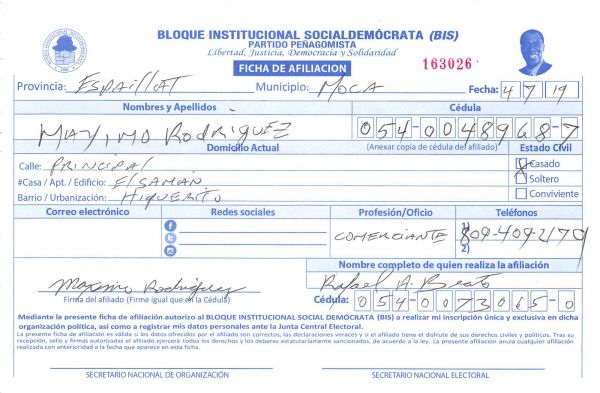 BLOQUE INSTITUCIONAL SOCIALDEMÓCRATA (BIS)
PARTIDO PEÑAGOMISTA
Libertad, Justicia, Democracia y Solidaridad
FICHA DE AFILIACION
163026
Provincia: ESPAILLAT Municipio: MOCA Fecha: 4/7/19
Nombres y Apellidos Cédula
MAYIMO RODRIGUEZ 054-0048968-7
Domicilio Actual (Anexar copia de cédula del afiliado) Estado Civil
Calle: PRINCIPAL Casado
#Casa / Apt. / Edificio: El SAMAN Soltero
Barrio / Urbanización: HIQUERITO Conviviente
Correo electrónico Redes sociales Profesión/Oficio Teléfonos
COMERCIANTE 1) 809-409-2179
2)
Nombre completo de quien realiza la afiliación
Maximo Rodriguez Rafael A. Beato
Firma del afiliado (Firme igual que en la Cédula) Cédula: 054-0073065-0
Mediante la presente ficha de afiliación autorizo al BLOQUE INSTITUCIONAL SOCIAL DEMÓCRATA (BIS) a realizar mi inscripción única y exclusiva en dicha
organización política, así como a registrar mis datos personales ante la Junta Central Electoral.
La presente ficha de afiliación es valida si los datos ofrecidos por el afiliado son correctos, las declaraciones veraces y si el afiliado tiene el disfrute de sus derechos civiles y políticos. Tras su
recepción, sello y firmas autorizadas el afiliado ejercerá todos los derechos y los deberes estatutariamente sancionados, de acuerdo a la ley. La presente afiliación anula cualquier afiliación
realizada con anterioridad a la fecha que aparece en esta ficha.
SECRETARIO NACIONAL DE ORGANIZACIÓN SECRETARIO NACIONAL ELECTORAL